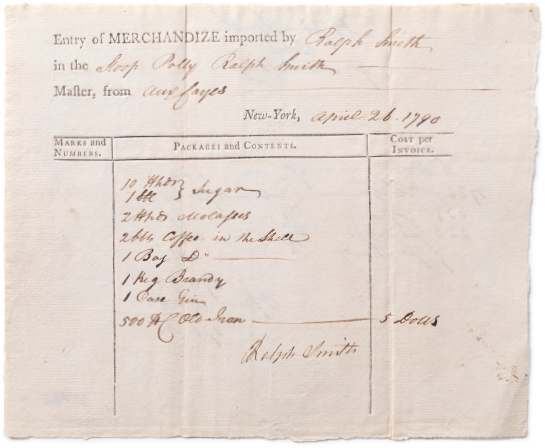 Entry of MERCHANDIZE imported by Ralph Smith
in the Sloop Polly Ralph Smith
Master, from Aux Cayes
New-York, April 26. 1790
MARKS and NUMBERS.
PACKAGES and CONTENTS.
COST per INVOICE.
10 Hhds
1 bbl } Sugar
2 Hhds Molasses
2 bbls Coffee in the Shell
1 Bag Do
1 Keg Brandy
1 Case Gin
500 Old Iron 5 Dolls
Ralph Smith